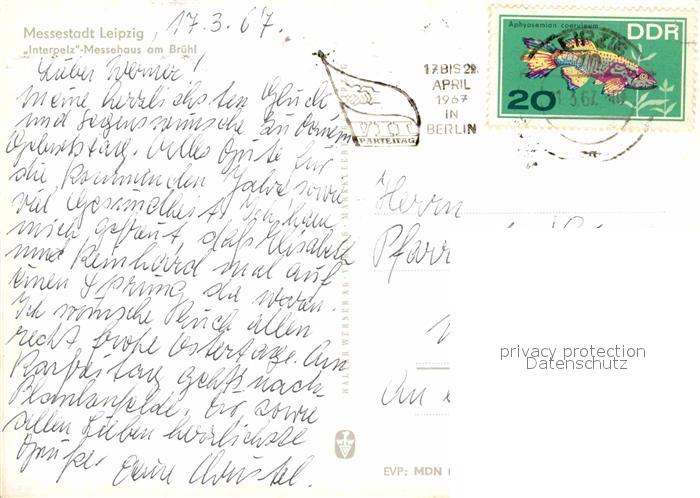 Messestadt Leipzig, 17.3.67.
„Interpelz"-Messehaus am Brühl
Lieber Werner!
Meine herzlichsten Glück
und Segenswünsche zu Deinem
Geburtstag. Alles Gute für
die kommenden Jahre sowie
viel Gesundheit. Ich habe
mich gefreut, daß Elisabeth
und Reinhard mal auf
einen Sprung da waren.
Ich wünsche Euch allen
recht frohe Ostertage. Am
Karfreitag geht's nach
Blankenfelde. Dir sowie
allen Lieben herzlichste
Grüße. Deine Christel.
VII.
PARTEITAG
17.BIS 22.
APRIL
1967
IN
BERLIN
Aphyosemion coeruleum
DDR
20
Herrn
Pfarr
An
privacy protection
Datenschutz
EVP: MDN